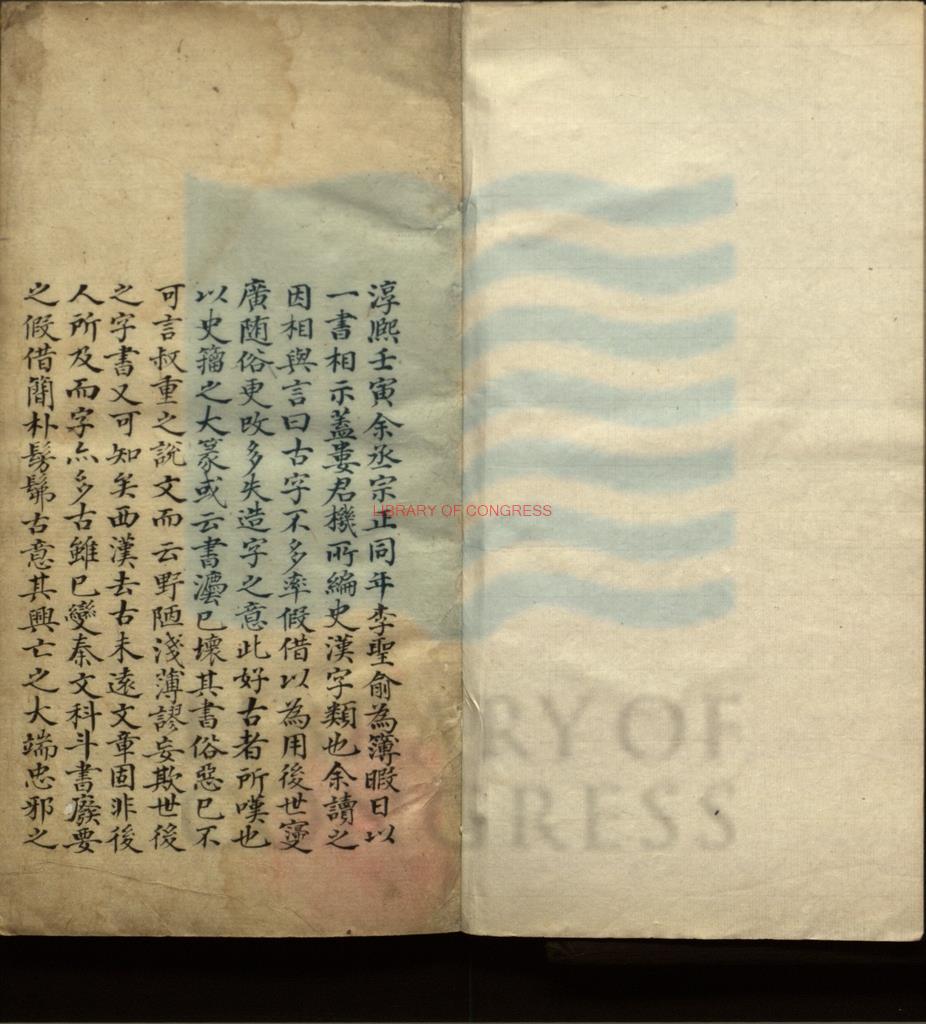 淳熈壬寅余丞宗正同年李聖俞為簿暇日以
一書相示蓋婁君機所編史漢字類也余讀之
因相與言曰古字不多率假借以為用後世寖
廣随俗更攺多失造字之意此好古者所嘆也
以史籀之大篆或云書灋已壞其書俗惡已不
可言叔重之說文而云野陋淺薄謬妄欺世後
之字書又可知矣西漢去古未遠文章固非後
人所及而字亦多古雖已變秦文科斗書廢要
之假借簡朴髣髴古意其興亡之大端忠邪之
LIBRARY OF CONGRESS
RY OF
GRESS